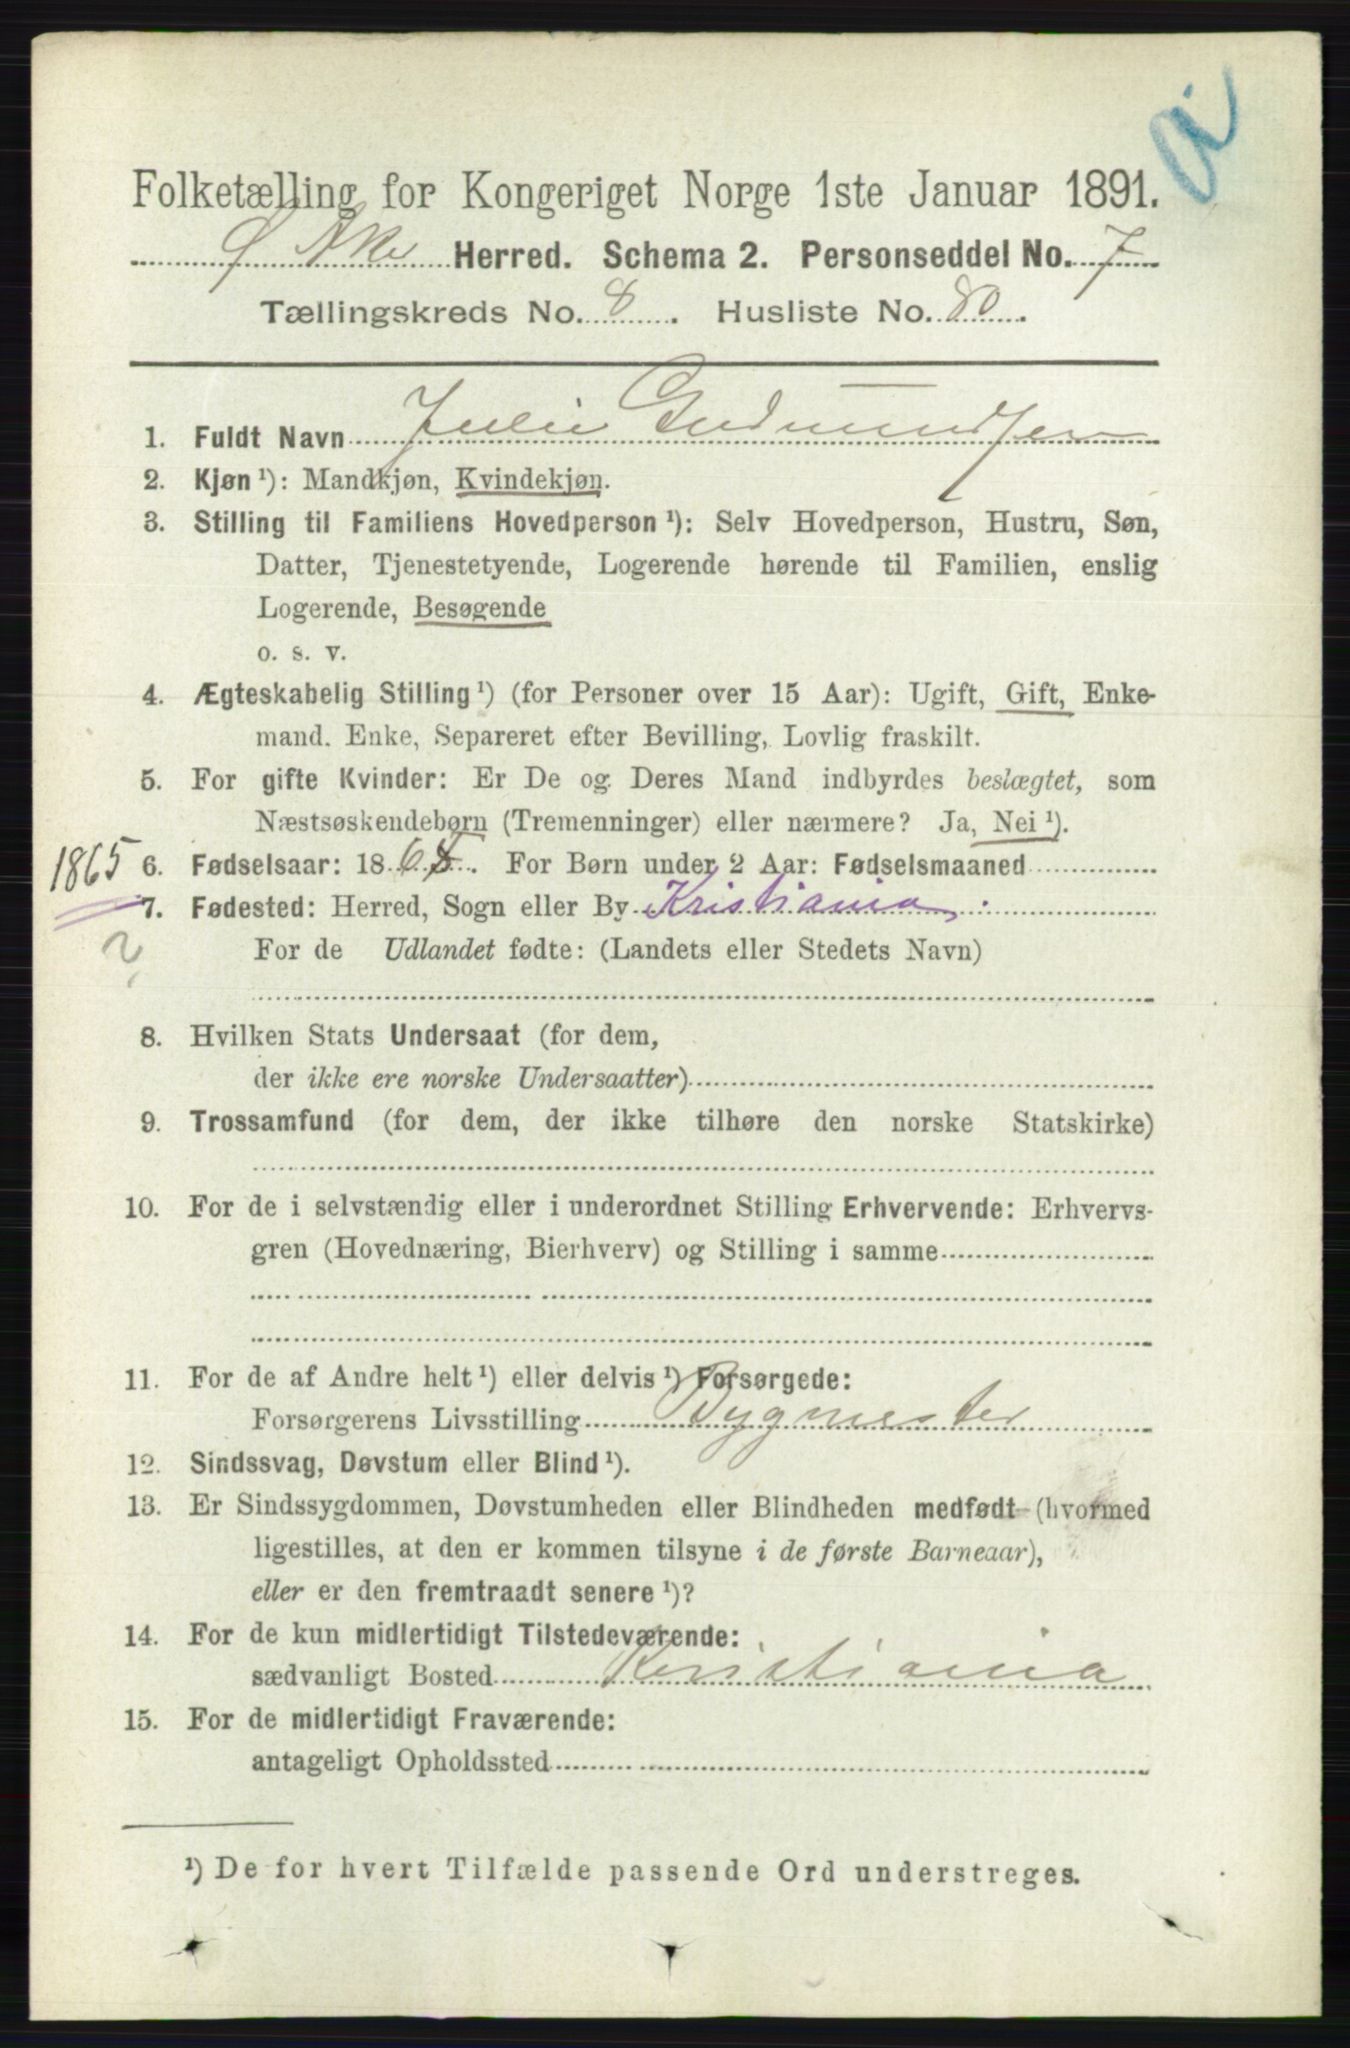 Folketælling for Kongeriget Norge 1ste Januar 1891.
Ø Aker Herred. Schema 2. Personseddel No. 7
Tællingskreds No. 8. Husliste No. 80.
1. Fuldt Navn Julie Gudmundsen
2. Kjøn ¹): Mandkjøn, Kvindekjøn.
3. Stilling til Familiens Hovedperson ¹): Selv Hovedperson, Hustru, Søn,
Datter, Tjenestetyende, Logerende hørende til Familien, enslig
Logerende, Besøgende
o. s. v.
4. Ægteskabelig Stilling ¹) (for Personer over 15 Aar): Ugift, Gift, Enke-
mand. Enke, Separeret efter Bevilling, Lovlig fraskilt.
5. For gifte Kvinder: Er De og Deres Mand indbyrdes beslægtet, som
Næstsøskendebørn (Tremenninger) eller nærmere? Ja, Nei ¹).
1865 6. Fødselsaar: 1865. For Børn under 2 Aar: Fødselsmaaned
7. Fødested: Herred, Sogn eller By Kristiania.
? For de Udlandet fødte: (Landets eller Stedets Navn)
8. Hvilken Stats Undersaat (for dem,
der ikke ere norske Undersaatter)
9. Trossamfund (for dem, der ikke tilhøre den norske Statskirke)
10. For de i selvstændig eller i underordnet Stilling Erhvervende: Erhvervs-
gren (Hovednæring, Bierhverv) og Stilling i samme
11. For de af Andre helt ¹) eller delvis ¹) Forsørgede:
Forsørgerens Livsstilling Bygmester
12. Sindssvag, Døvstum eller Blind ¹).
13. Er Sindssygdommen, Døvstumheden eller Blindheden medfødt (hvormed
ligestilles, at den er kommen tilsyne i de første Barneaar),
eller er den fremtraadt senere ¹)?
14. For de kun midlertidigt Tilstedeværende:
sædvanligt Bosted Kristiania
15. For de midlertidigt Fraværende:
antageligt Opholdssted
¹) De for hvert Tilfælde passende Ord understreges.